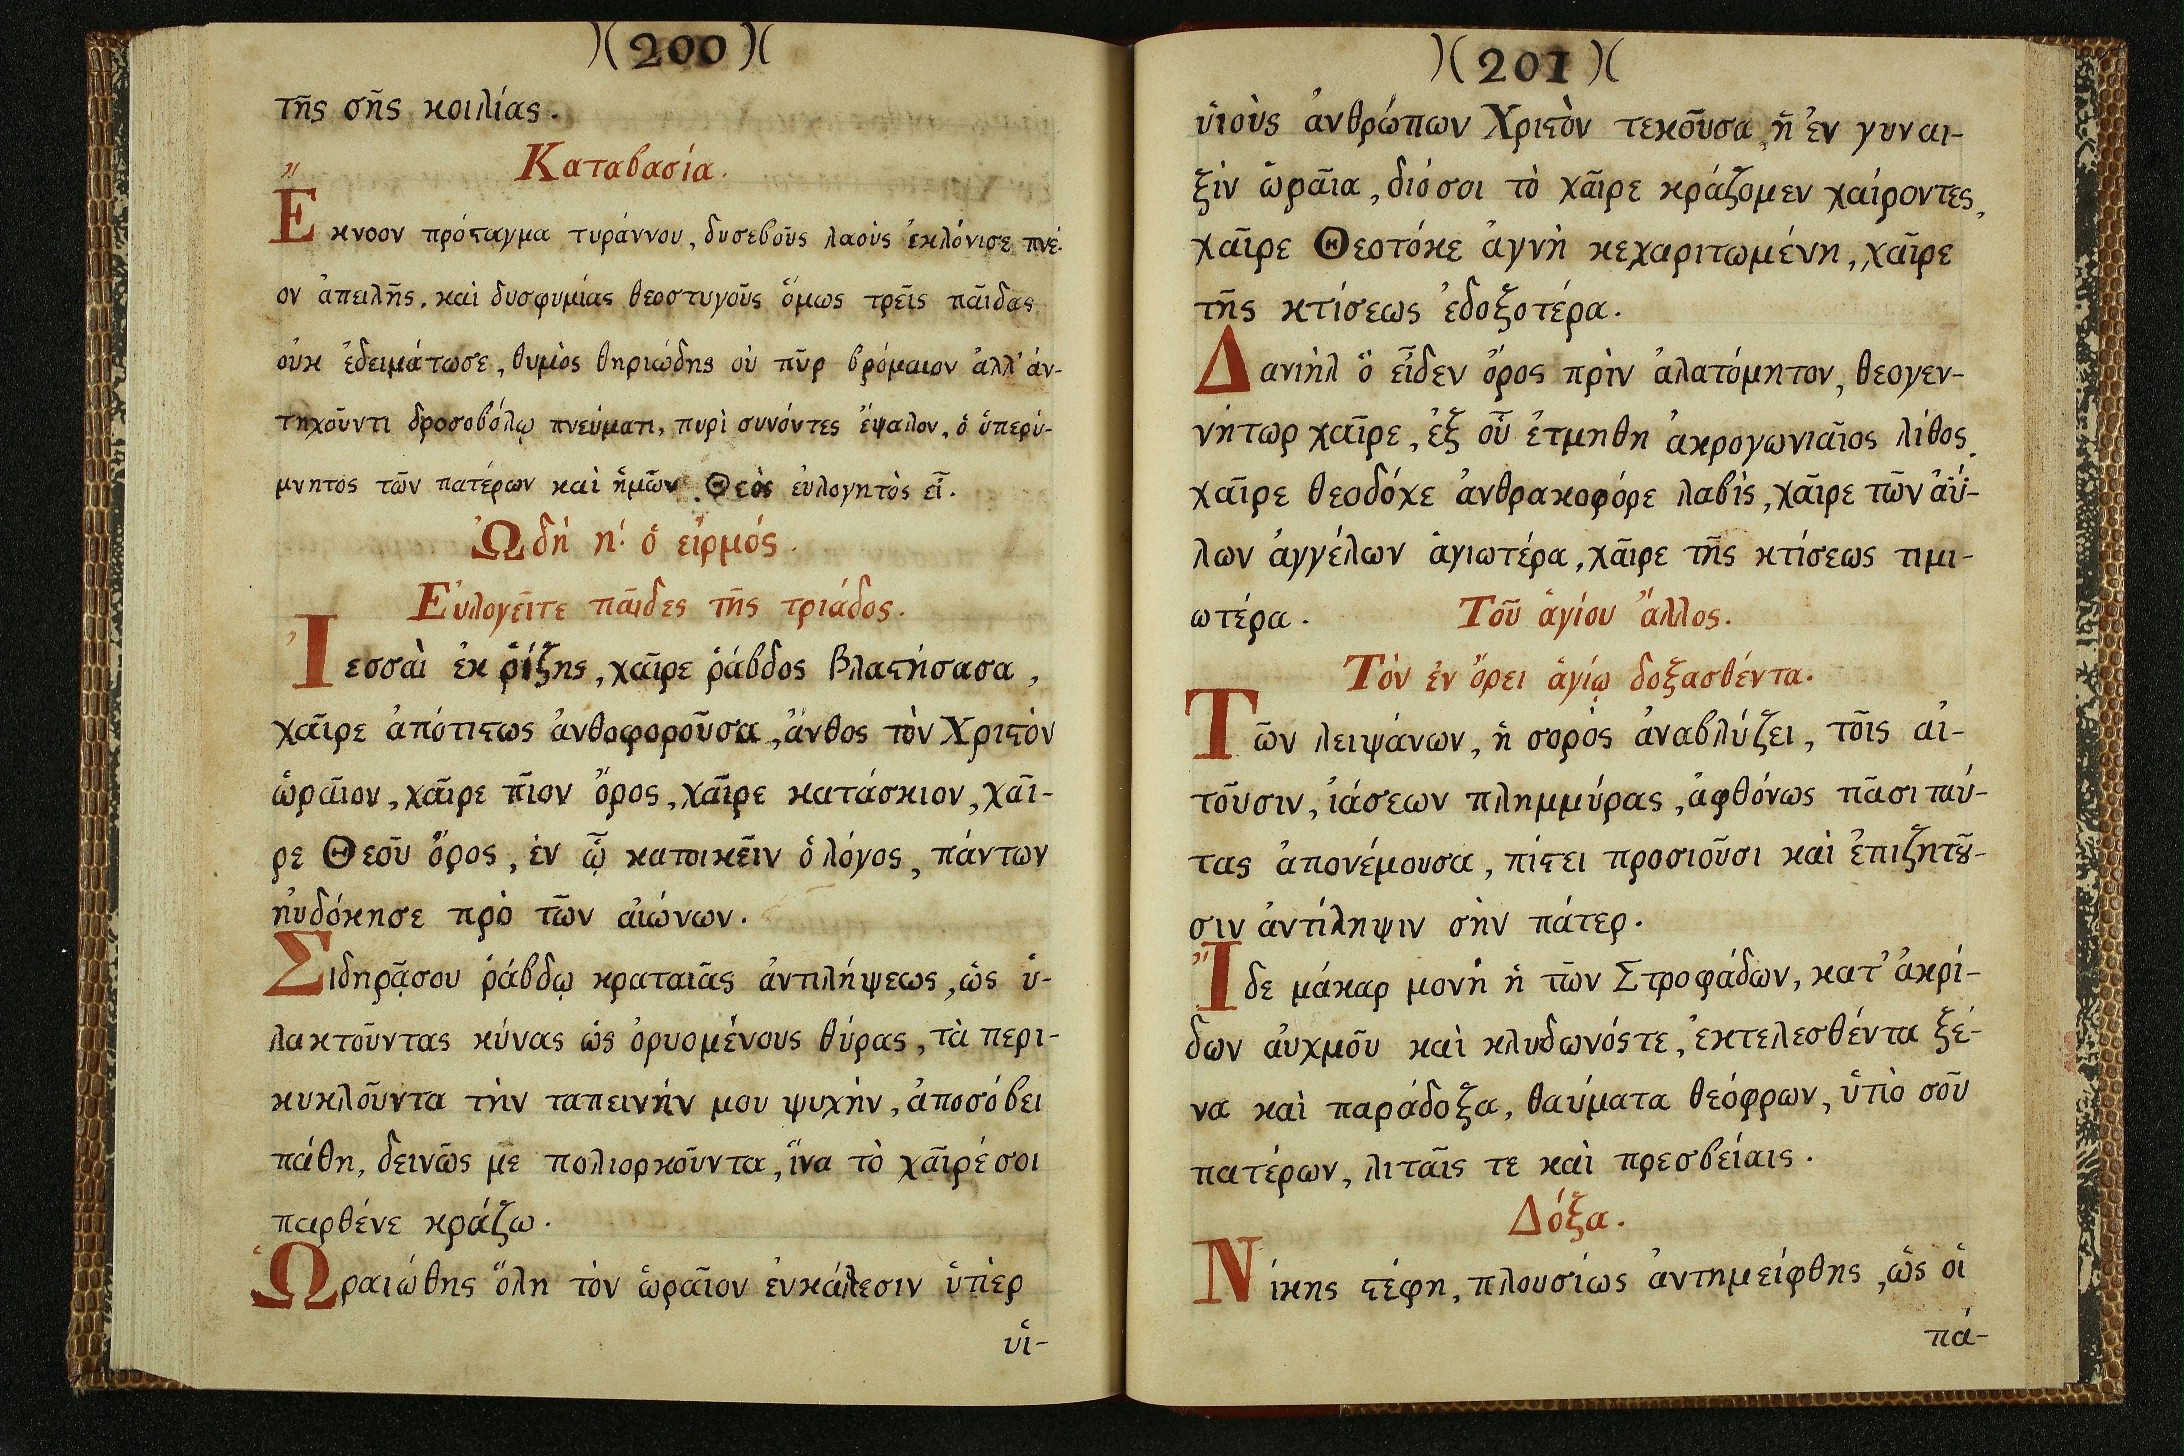 )( 200 )(
τῆς σῆς κοιλίας.
Καταβασία.
Ἔκνοον πρόςαγμα τυράννου, δυσεβοῦς λαοὺς ἐκλόνισε πνέ-
ον ἀπειλῆς, καὶ δυσφυμίας θεοστυγοῦς ὅμως τρεῖς παῖδας
οὐκ ἐδειμάτωσε, θυμὸς θηριώδης οὐ πῦρ βρόμαιον ἀλλ' ἀν-
τηχοῦντι δροσοβόλῳ πνεύματι, πυρὶ συνόντες ἔψαλον, ὁ ὑπερύ-
μνητος τῶν πατέρων καὶ ἡμῶν Θεὸς εὐλογητὸς εἶ.
Ὠδή η΄. ὁ εἱρμός.
Εὐλογεῖτε παῖδες τῆς τριάδος.
Ἰεσσαὶ ἐκ ῥίζης, χαῖρε ῥάβδος βλαςήσασα,
χαῖρε ἀπότιςως ἀνθοφοροῦσα, ἄνθος τὸν Χριςὸν
ὡραῖον, χαῖρε πῖον ὄρος, χαῖρε κατάσκιον, χαῖ-
ρε Θεοῦ ὄρος, ἐν ᾧ κατοικεῖν ὁ λόγος, πάντων
ηὐδόκησε πρὸ τῶν αἰώνων.
Σιδηρᾷσου ῥάβδῳ κραταιᾶς ἀντιλήψεως, ὡς ὑ-
λακτοῦντας κύνας ὡς ὀρυομένους θύρας, τὰ περι-
κυκλοῦντα τὴν ταπεινήν μου ψυχὴν, ἀποσόβει
πάθη, δεινῶς με πολιορκοῦντα, ἵνα τὸ χαῖρέ σοι
παρθένε κράζω.
Ὡραιώθης ὅλη τὸν ὡραῖον ἐνκάλεσιν ὑπὲρ
υἱ-
)( 201 )(
ὑιοὺς ἀνθρώπων Χριςὸν τεκοῦσα, ἡ ἐν γυναι-
ξὶν ὡραῖα, διό σοι τὸ χαῖρε κράζομεν χαίροντες,
χαῖρε Θεοτόκε ἁγνὴ κεχαριτωμένη, χαῖρε
τῆς κτίσεως ἐδοξοτέρα.
Δανιὴλ ὃ εἶδεν ὄρος πρὶν ἀλατόμητον, θεογεν-
νήτωρ χαῖρε, ἐξ οὗ ἐτμηθη ἀκρογωνιαῖος λίθος,
χαῖρε θεοδόχε ἀνθρακοφόρε λαβὶς, χαῖρε τῶν ἀΰ-
λων ἀγγέλων ἁγιωτέρα, χαῖρε τῆς κτίσεως τιμι-
ωτέρα. Τοῦ ἁγίου ἄλλος.
Τὸν ἐν ὄρει ἁγίῳ δοξασθέντα.
Τῶν λειψάνων, ἡ σορὸς ἀναβλύζει, τοῖς αἰ-
τοῦσιν, ἰάσεων πλημμύρας, ἀφθόνως πᾶσι ταύ-
τας ἀπονέμουσα, πίςει προσιοῦσι καὶ ἐπιζητȣ͂-
σιν ἀντίληψιν σὴν πάτερ.
Ἴδε μάκαρ μονὴ ἡ τῶν Στροφάδων, κατ' ἀκρί-
δων ἀυχμοῦ καὶ κλυδωνόςτε, ἐκτελεσθέντα ξέ-
να καὶ παράδοξα, θαύματα θεόφρων, ὑπὸ σοῦ
πατέρων, λιταῖς τε καὶ πρεσβείαις.
Δόξα.
Νίκης ςέφη, πλουσίως ἀντημείφθης, ὡς οἱ
πά-